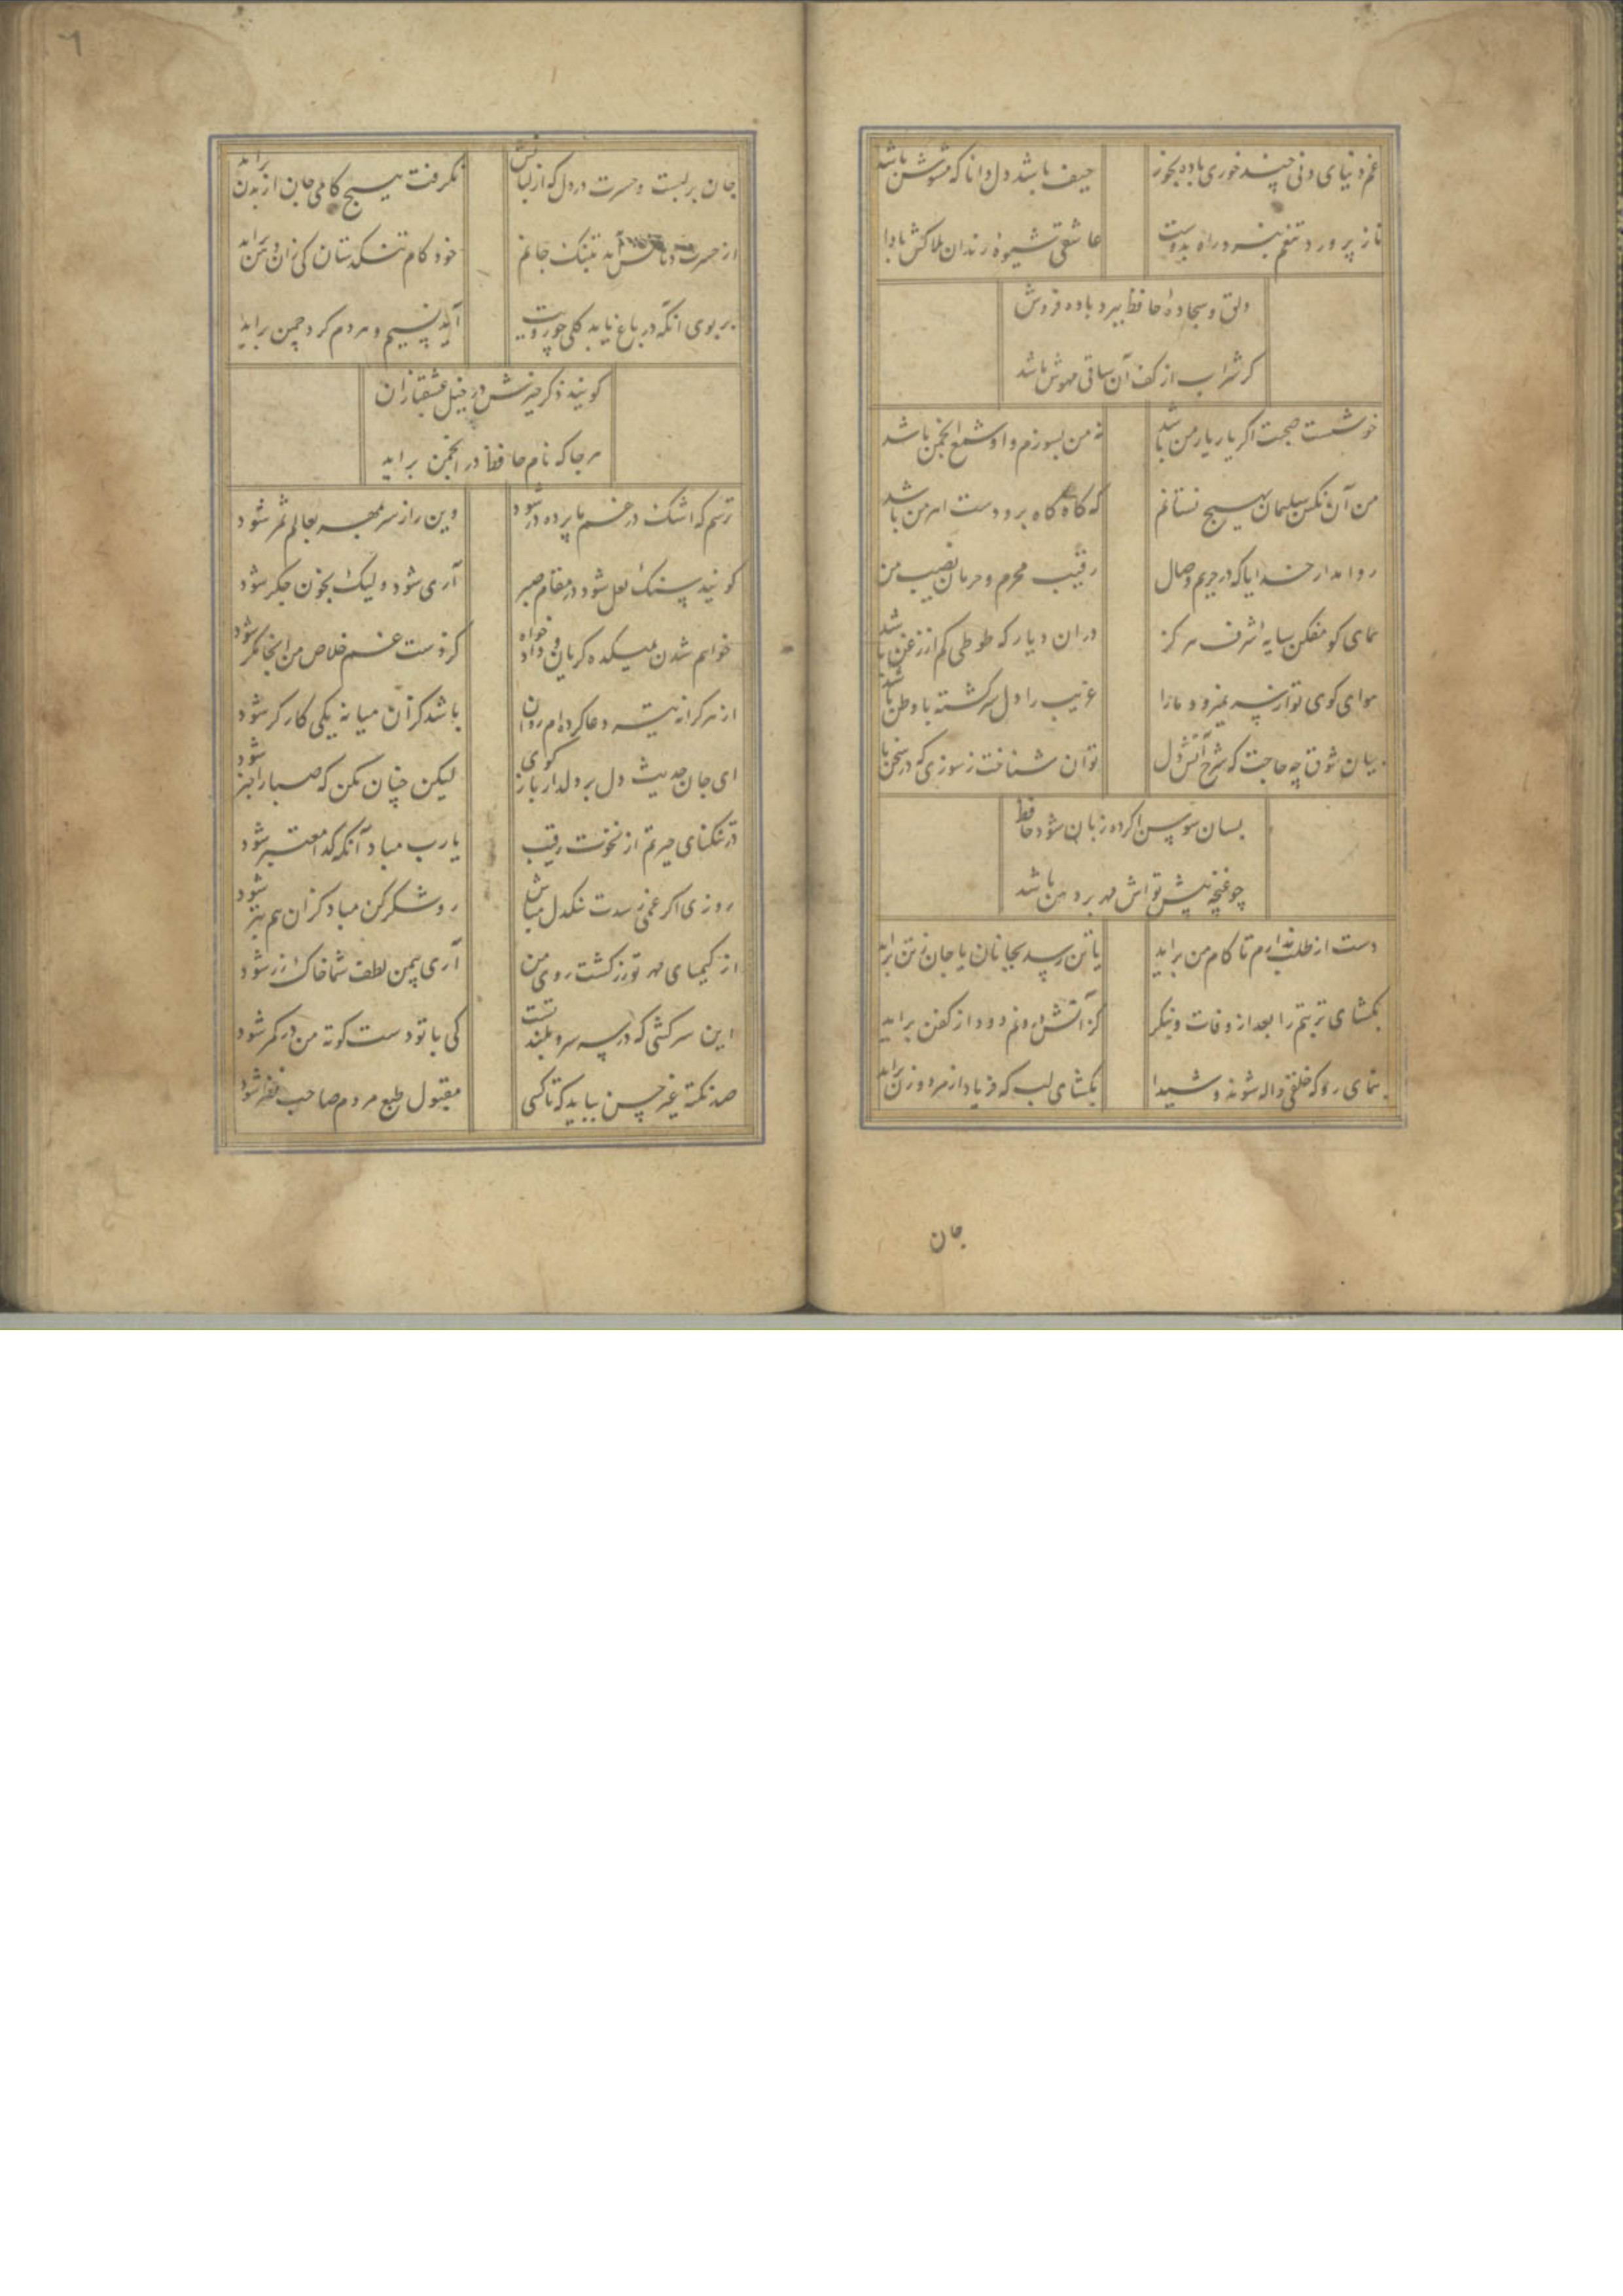 غم دنیای دنی چند خوری باده بخور حیف باشد دل دانا که مشوش باشد
ناز پرورد تنعم نبرد راه بدوست عاشقی شیوه رندان بلاکش باشد
دلق و سجاده حافظ ببرد باده فروش
گر شراب از کف آن ساقی مهوش باشد
خوشست صحبت اگر یار یار من باشد نه من بسوزم و او شمع انجمن باشد
من آن نگین سلیمان بهیچ نستانم که گاه گاه برو دست اهرمن باشد
روا مدار خدایا که در حریم وصال رقیب محرم و حرمان نصیب من
همای گو مفکن سایه شرف هرگز دران دیار که طوطی کم از زغن باشد
هوای کوی تو از سر نمیرود ما را غریب را دل سرگشته با وطن باشد
بیان شوق چه حاجت که شرح آتش دل توان شناخت ز سوزی که در سخن با
بسان سوسن اگر ده زبان شود حافظ
چو غنچه پیش تو اش مهر بر دهن باشد
دست از طلب ندارم تا کام من براید یا تن رسد بجانان یا جان ز تن براید
بکشای تربتم را بعد از وفات و بنگر کز آتش درونم دود از کفن براید
بنمای رو که خلقی واله شوند و شیدا بکشای لب که فریاد از مرد و زن براید
جان
۶
جان بر لبست و حسرت در دل که از لبانش نگرفت هیچ کامی جان از بدن براید
از حسرت دهانش آمد بتنگ جانم خود کام تنگدستان کی زان دهن براید
بر بوی آنکه در باغ یابد گلی چو رویت آید نسیم و هردم گرد چمن براید
گویند ذکر خیرش در خیل عشقبازان
هرجا که نام حافظ در انجمن براید
ترسم که اشک در غم ما پرده در شود وین راز سر بمهر بعالم ثمر شود
گویند سنگ لعل شود در مقام صبر آری شود ولیک بخون جگر شود
خواهم شدن بمیکده گریان و داد خواه کز دست غم خلاص من آنجا مگر شود
از هر کرانه تیر دعا کرده ام روان باشد کز آن میانه یکی کارگر شود
ای جان حدیث دل بر دلدار باز گوی لیکن چنان مکن که صبا را خبر شود
در تنگنای حیرتم از نخوت رقیب یارب مباد آنکه گدا معتبر شود
روزی اگر غمی رسدت تنگدل مباش رو شکر کن مباد کزان هم بتر شود
از کیمیای مهر تو زر گشت روی من آری بیمن لطف شما خاک زر شود
این سرکشی که در سر سرو بلند تست کی با تو دست کوته من در کمر شود
صد نکته غیر حسن بباید که تا کسی مقبول طبع مردم صاحب نظر شود